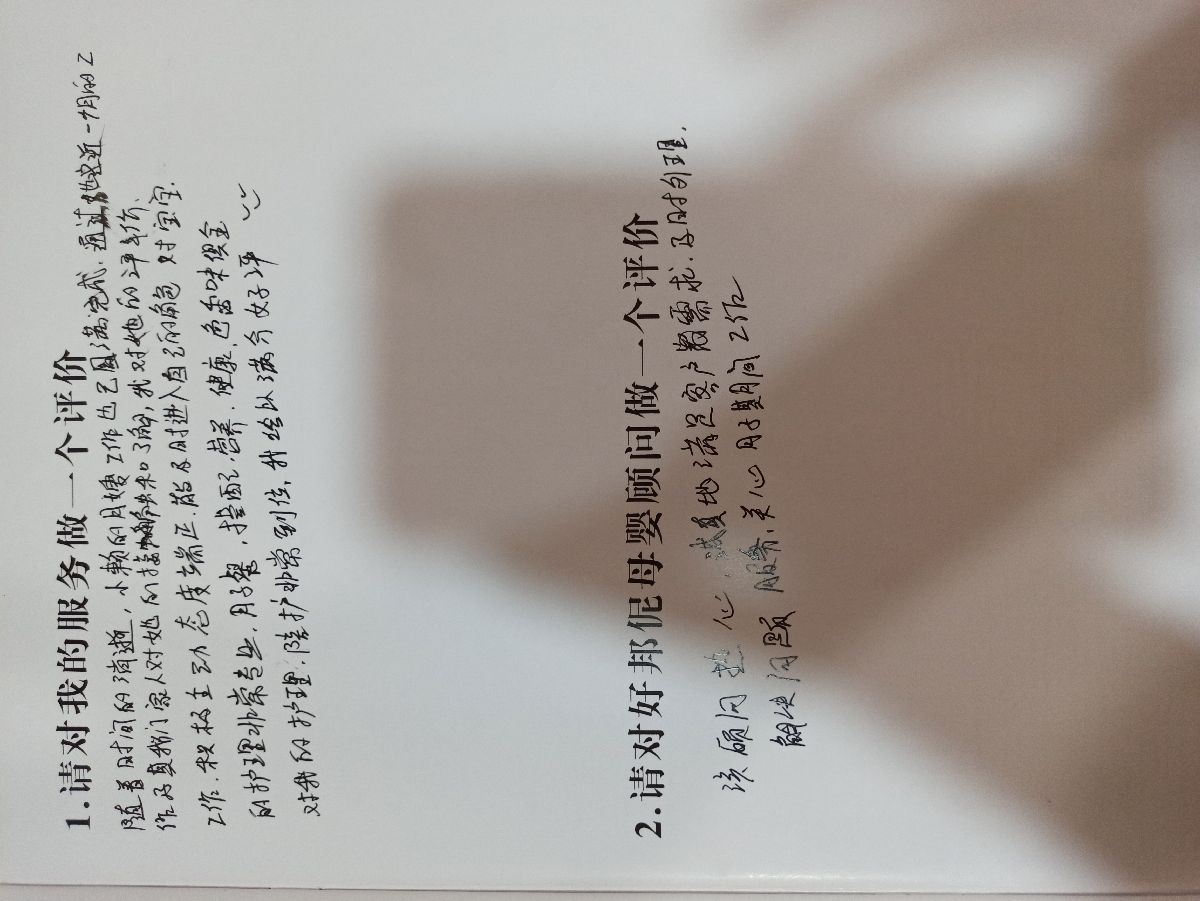 1.请对我的服务做一个评价
随着时间的消逝，小赖的月嫂工作也已圆满完成.通过她这近一个月的工
作及真我们家人对她的接触和了解,我对她的评价.
工作.积极主动态度端正.能及时进入自己的角色 对宝宝.
的护理非常专业.月子餐,搭配.营养.健康.色香味俱全
对我的护理.陪护非常到位,我给以满分好评
2.请对好邦伲母婴顾问做一个评价
该顾问热心.诚复地满足客户需求.及时处理.
解决问题 服务.关心月子期间工作